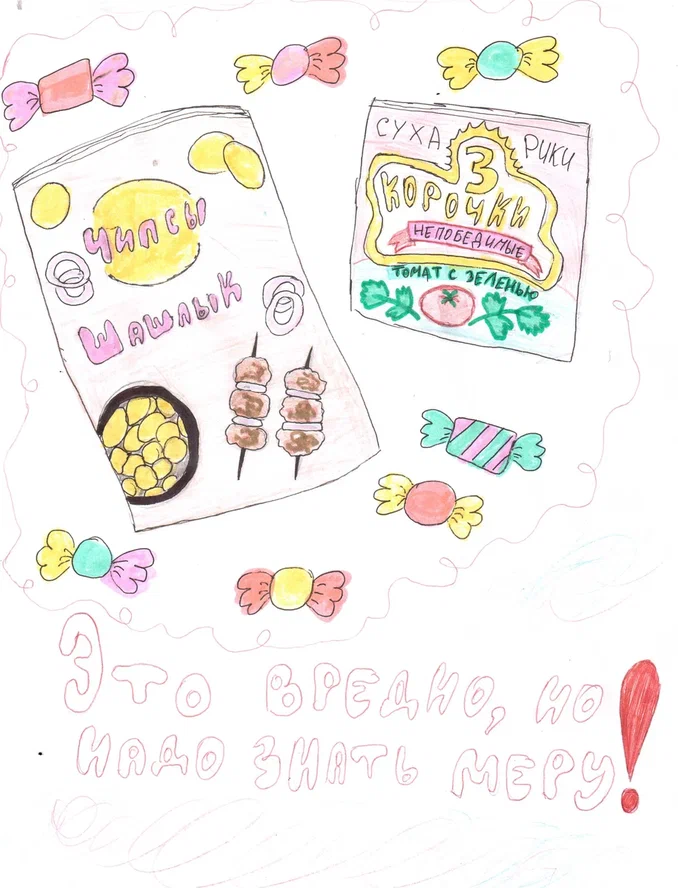 Чипсы
Шашлык
СУХАРИКИ
3
КОРОЧКИ
НЕПОБЕДИМЫЕ
ТОМАТ С ЗЕЛЕНЬЮ
Это вредно, но
надо знать меру!